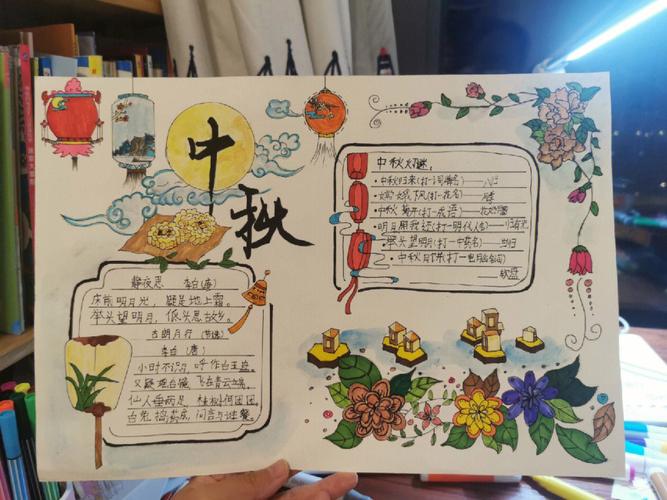 中秋
静夜思 李白(唐)
床前明月光，疑是地上霜。
举头望明月，低头思故乡。
古朗月行 (节选)
李白 (唐)
小时不识月 呼作白玉盘。
又疑瑶台镜 飞在青云端。
仙人垂两足 桂树何团团。
白兔捣药成，问言与谁餐。
中秋灯谜，
•中秋归来(打一词牌名)——
•嫦娥下凡(打一花名)——
•中秋菊开(打一成语)——
•明月照我还(打一明代人名)——归有光
•举头望明月(打一中药名)——当归
•中秋月饼(打一电脑名词)
——软盘